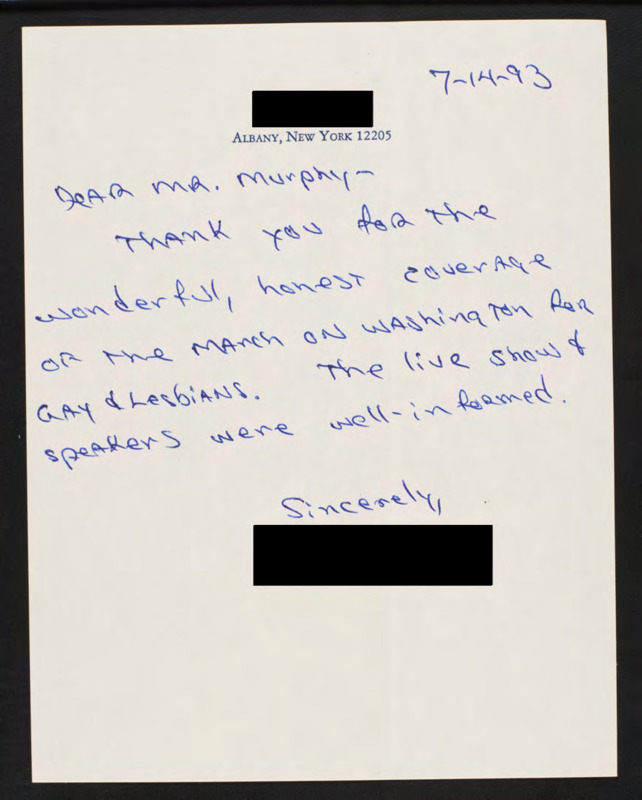 7-14-93
ALBANY, NEW YORK 12205
DEAR MR. Murphy-
THANK you for the
wonderful, honest coverage
OF the MARch ON WAShingTon for
GAY & LesbiANS. The live show &
speakers were well-informed.
Sincerely,